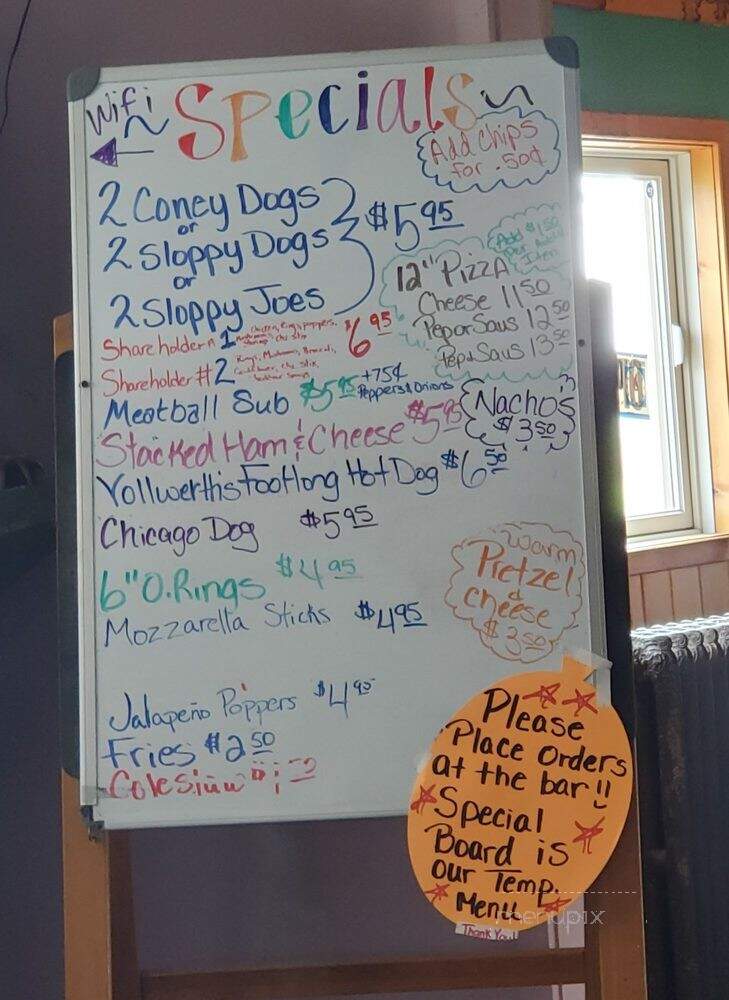 Wifi
~ Specials ~
Add Chips
for .50¢
2 Coney Dogs
or
2 Sloppy Dogs
or
2 Sloppy Joes
$5.95
Add $1.50
Per Add'l
Item
12" Pizza
Cheese 11.50
Pep or Saus 12.50
Pep & Saus 13.50
Shareholder # 1
$6.95
Shareholder # 2
Meatball Sub $5.95 +75¢
Peppers & Onions
Stacked Ham & Cheese $5.95
Nachos
$3.50
Vollwerthis Footlong Hot Dog $6.50
Chicago Dog $5.95
6" O.Rings $4.95
Mozzarella Sticks $4.95
Warm
Pretzel
&
cheese
$3.50
Jalapeño Poppers $4.95
Fries $2.50
Please
Place Orders
at the bar!!
Special
Board is
our Temp.
Menu
Thank You!
menupix